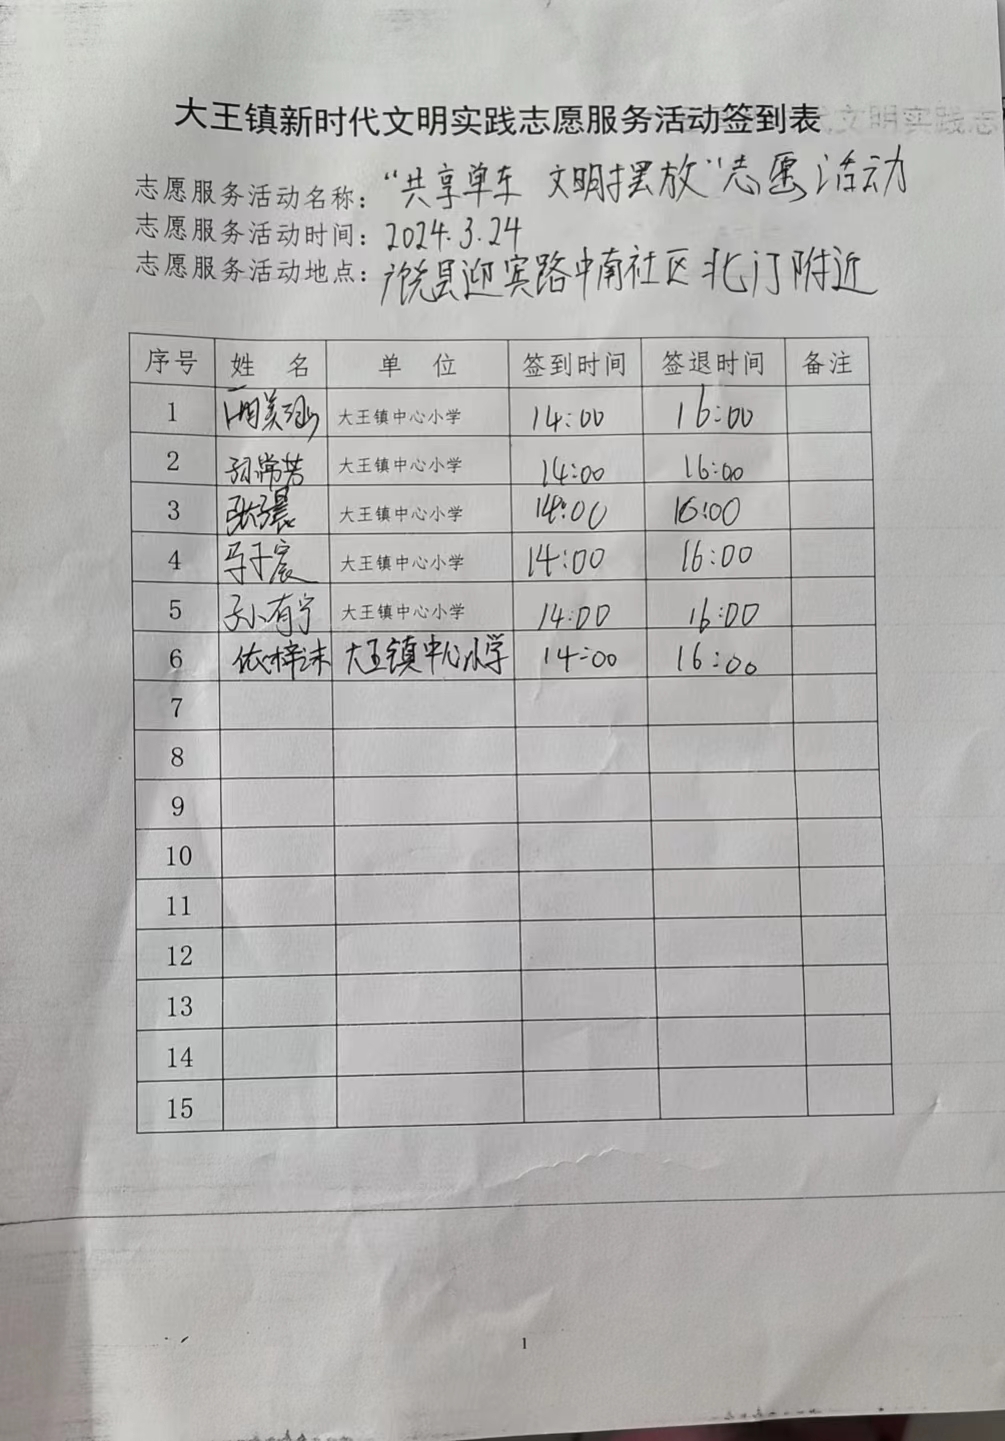 大王镇新时代文明实践志愿服务活动签到表
志愿服务活动名称：“共享单车 文明摆放”志愿活动
志愿服务活动时间：2024.3.24
志愿服务活动地点：广饶县迎宾路中南社区北门附近
序号 姓 名 单 位 签到时间 签退时间 备注
1 大王镇中心小学 14:00 16:00
2 孙常芳 大王镇中心小学 14:00 16:00
3 大王镇中心小学 14:00 16:00
4 马子宸 大王镇中心小学 14:00 16:00
5 孙有宁 大王镇中心小学 14:00 16:00
6 大王镇中心小学 14:00 16:00
7
8
9
10
11
12
13
14
15
1